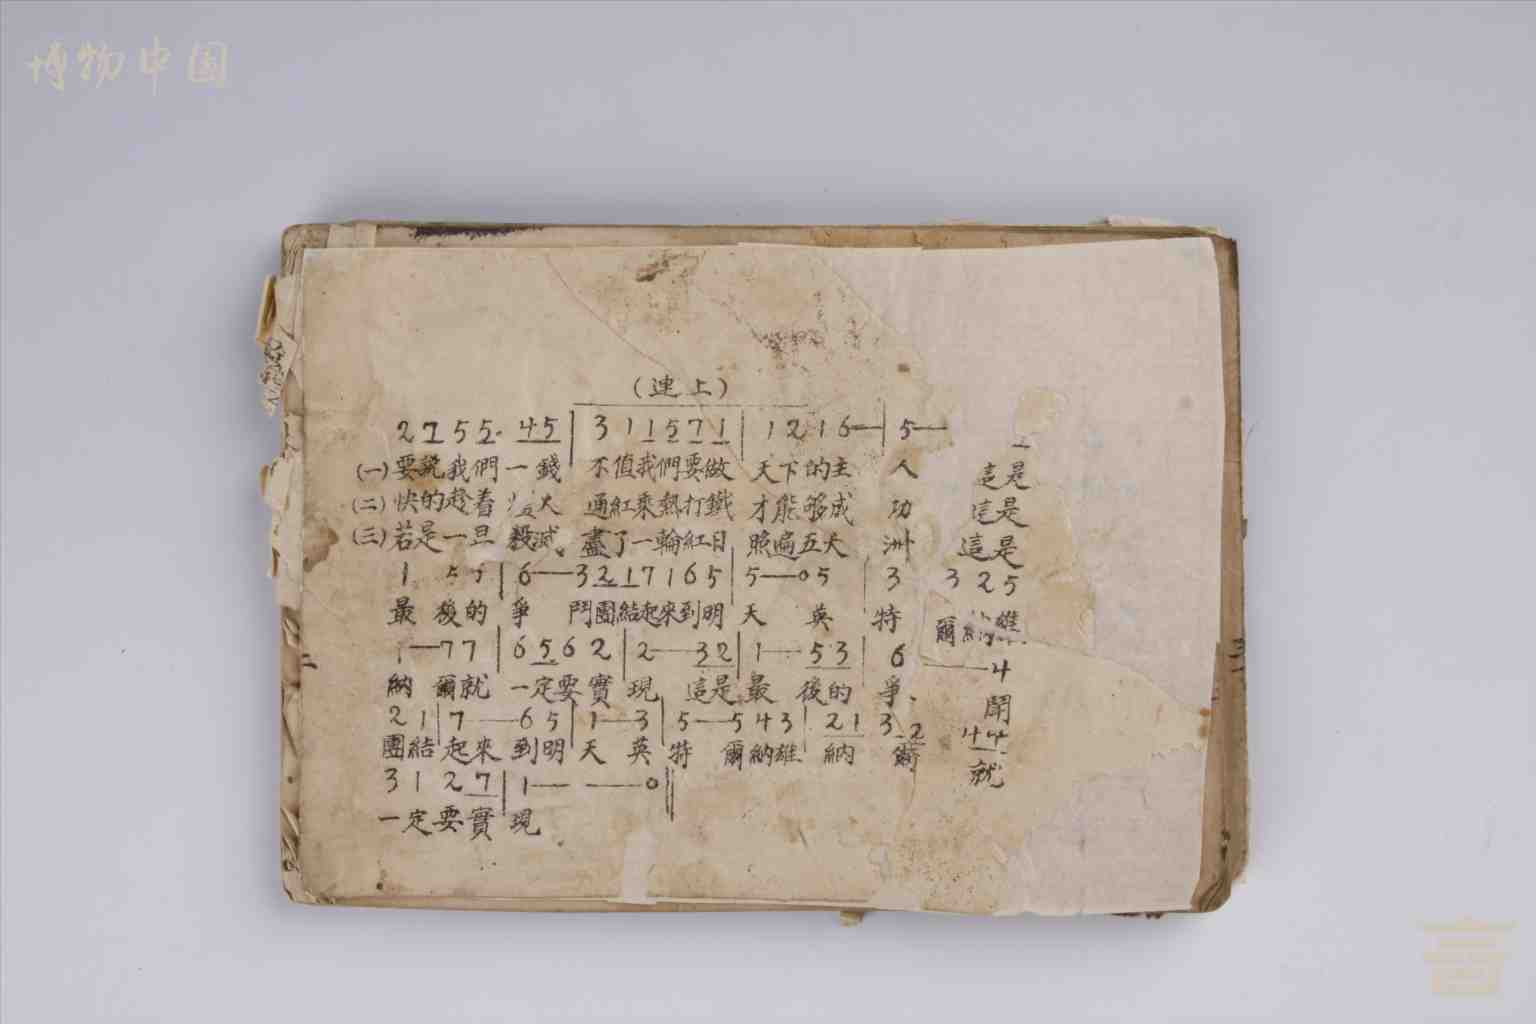 博物中国
（連上）
2 7 5 5. 4 5 | 3 1 1 5 7 1 | 1 2 1 6— | 5—
(一)要說我們一錢 不值我們要做 天下的主 人 這是
(二)快的趁着 火 通紅乘熱打鐵 才能够成 功 這是
(三)若是一旦 毀滅。盡了一輪紅日 照遍五大 洲 這是
1 5 5 | 6——3 2 1 7 1 6 5 | 5——0 5 | 3 3 2 5
最 後的 爭 鬥團結起來到明 天 英 特 爾納雄
1—7 7 | 6 5 6 2 | 2——3 2 | 1—5 3 | 6——4
納 爾就 一定要實 現 這是 最 後的 爭、 鬧
2 1 | 7——6 5 | 1—3 | 5——5 4 3 | 2 1 3 2 4 4
團結 起來 到明 天 英 特 爾納雄 納 爾 就
3 1 2 7 | 1—— ——0 ‖
一定要實 現